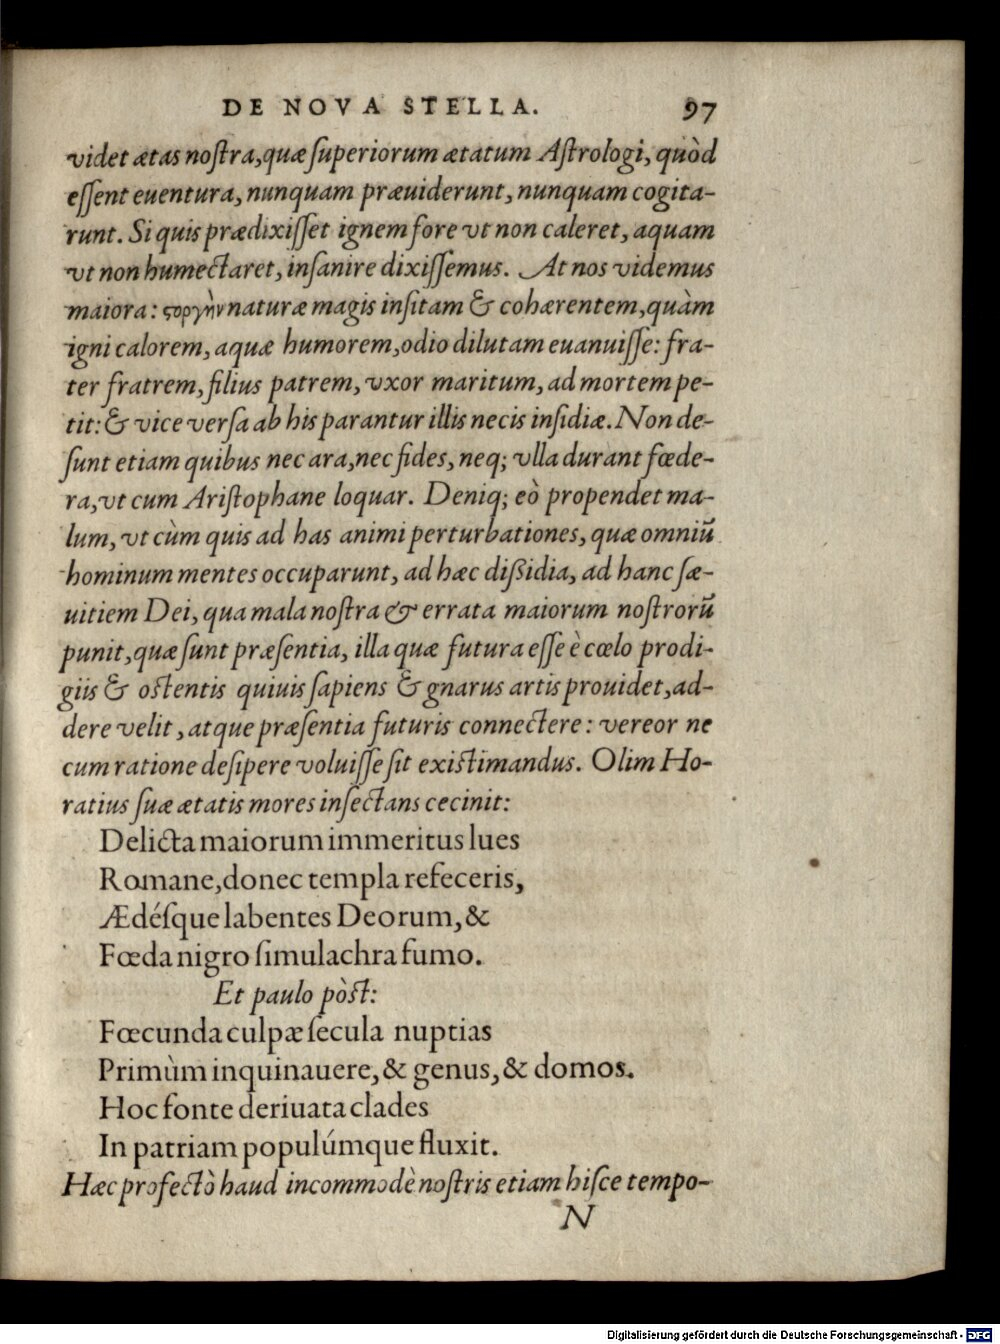 DE NOVA STELLA. 97
videt ætas nostra, quæ superiorum ætatum Astrologi, quòd
essent euentura, nunquam præuiderunt, nunquam cogita-
runt. Si quis prædixisset ignem fore vt non caleret, aquam
vt non humectaret, insanire dixissemus. At nos videmus
maiora: ϛοργὴν naturæ magis insitam & cohærentem, quàm
igni calorem, aquæ humorem, odio dilutam euanuisse: fra-
ter fratrem, filius patrem, vxor maritum, ad mortem pe-
tit: & vice versa ab his parantur illis necis insidiæ. Non de-
sunt etiam quibus nec ara, nec fides, neq; vlla durant fœde-
ra, vt cum Aristophane loquar. Deniq; eò propendet ma-
lum, vt cùm quis ad has animi perturbationes, quæ omniũ
hominum mentes occuparunt, ad hæc dißidia, ad hanc sæ-
uitiem Dei, qua mala nostra & errata maiorum nostrorũ
punit, quæ sunt præsentia, illa quæ futura esse è cœlo prodi-
giis & ostentis quiuis sapiens & gnarus artis prouidet, ad-
dere velit, atque præsentia futuris connectere: vereor ne
cum ratione desipere voluisse sit existimandus. Olim Ho-
ratius suæ ætatis mores insectans cecinit:
Delicta maiorum immeritus lues
Romane, donec templa refeceris,
Ædésque labentes Deorum, &
Fœda nigro simulachra fumo.
Et paulo pòst:
Fœcunda culpæ secula nuptias
Primùm inquinauere, & genus, & domos.
Hoc fonte deriuata clades
In patriam populúmque fluxit.
Hæc profectò haud incommodè nostris etiam hisce tempo-
N
Digitalisierung gefördert durch die Deutsche Forschungsgemeinschaft - DFG